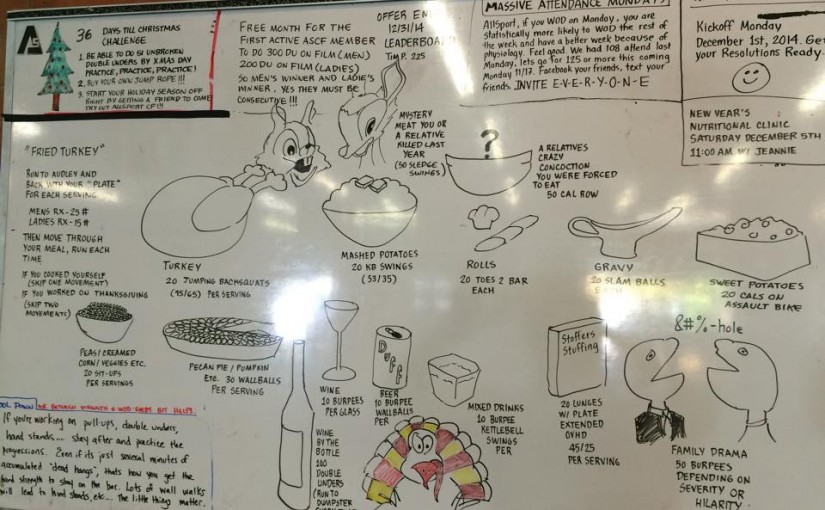 36 DAYS TILL CHRISTMAS
CHALLENGE
1. BE ABLE TO DO 51 UNBROKEN
DOUBLE UNDERS BY XMAS DAY
PRACTICE, PRACTICE, PRACTICE!
2. BUY YOUR OWN JUMP ROPE!!!
3. START YOUR HOLIDAY SEASON OFF
RIGHT BY GETTING A FRIEND TO COME
TRY OUT ALLSPORT CF!!!
FREE MONTH FOR THE
FIRST ACTIVE ASCF MEMBER
TO DO 300 DU ON FILM (MEN)
200 DU ON FILM (LADIES)
SO MEN'S WINNER AND LADIE'S
WINNER. YES THEY MUST BE
CONSECUTIVE!!!
OFFER EN
12/31/14
LEADERBOA
TIM P. 225
MASSIVE ATTENDANCE MONDAYS
AllSport, if you WOD on Monday, you are
statistically more likely to WOD the rest of
the week and have a better week because of
physiology. Feel good. We had 108 attend last
Monday, lets go for 125 or more this coming
Monday 11/17. Facebook your friends, text your
friends. INVITE E-V-E-R-Y-O-N-E
Kickoff Monday
December 1st, 2014. Get
your Resolutions Ready.
NEW YEAR'S
NUTRITIONAL CLINIC
SATURDAY DECEMBER 5TH
11:00 AM W/ JEANNIE
"FRIED TURKEY"
RUN TO AUDLEY AND
BACK WITH YOUR "PLATE"
FOR EACH SERVING
MENS RX-25#
LADIES RX-15#
THEN MOVE THROUGH
YOUR MEAL, RUN EACH
TIME
IF YOU COOKED YOURSELF
(SKIP ONE MOVEMENT)
IF YOU WORKED ON THANKSGIVING
(SKIP TWO
MOVEMENTS)
MYSTERY
MEAT YOU OR
A RELATIVE
KILLED LAST
YEAR
(50 SLEDGE
SWINGS)
?
A RELATIVES
CRAZY
CONCOCTION
YOU WERE FORCED
TO EAT
50 CAL ROW
TURKEY
20 JUMPING BACKSQUATS
(95/65) PER SERVING
MASHED POTATOES
20 KB SWINGS
(53/35)
ROLLS
20 TOES 2 BAR
EACH
GRAVY
20 SLAM BALLS
EACH
SWEET POTATOES
20 CALS ON
ASSAULT BIKE
PEAS/CREAMED
CORN/VEGGIES ETC.
20 SIT-UPS
PER SERVINGS
PECAN PIE/PUMPKIN
ETC. 30 WALLBALLS
PER SERVING
WINE
10 BURPEES
PER GLASS
DUFF
BEER
10 BURPEE
WALLBALLS
PER
MIXED DRINKS
10 BURPEE
KETTLEBELL
SWINGS
PER
Stoffers
Stuffing
20 LUNGES
W/ PLATE
EXTENDED
OVHD
45/25
PER SERVING
&#%-hole
FAMILY DRAMA
50 BURPEES
DEPENDING ON
SEVERITY OR
HILARITY
WINE
BY THE
BOTTLE
100
DOUBLE
UNDERS
(RUN TO
DUMPSTER
If you're working on pull-ups, double unders,
hand stands.... stay after and practice the
progressions. Even if its just several minutes of
accumulated "dead hangs", thats how you get the
hand strength to stay on the bar. Lots of wall walks
will lead to hand stands, etc... The little things matter.